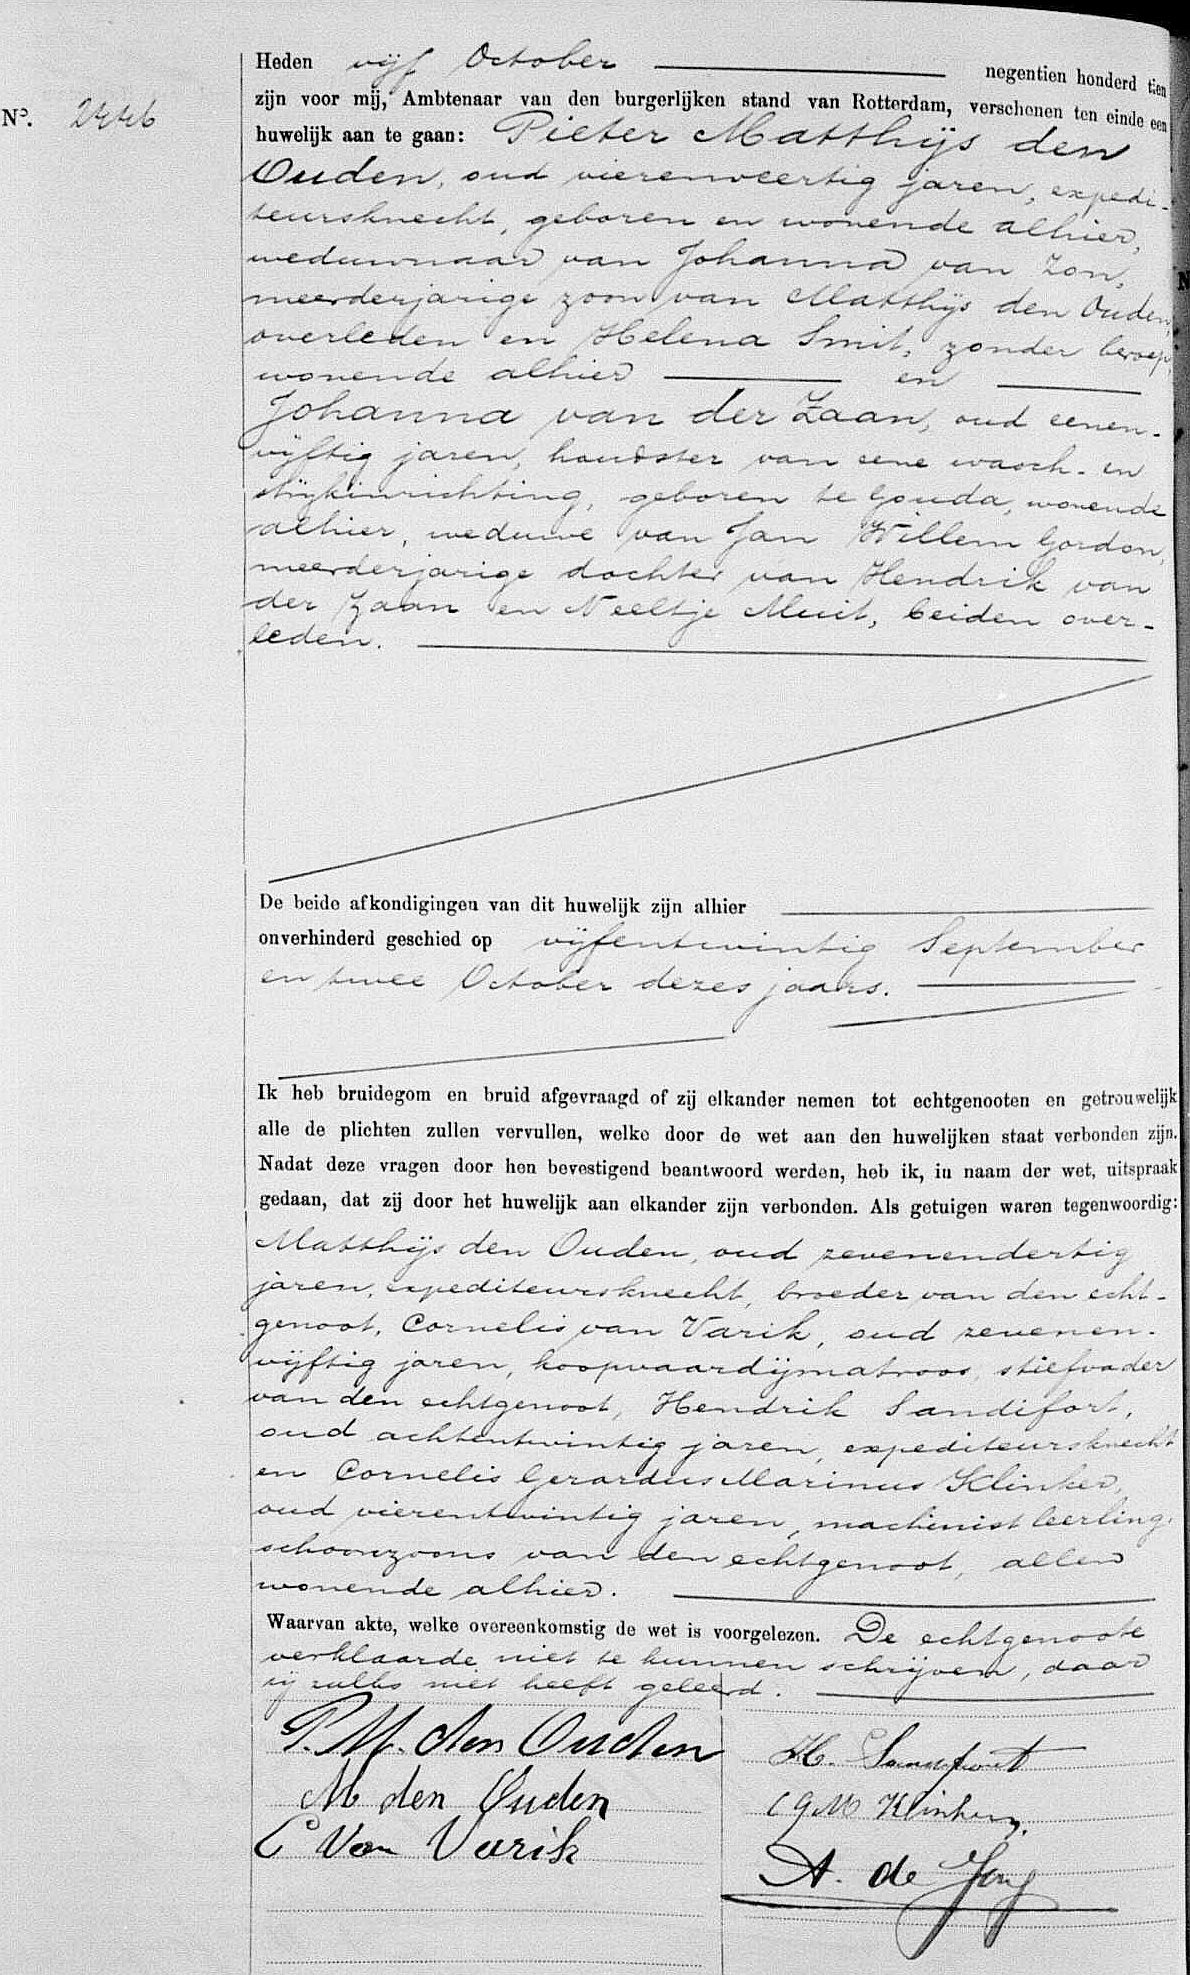 Heden vijf October negentien honderd tien
zijn voor mij, Ambtenaar van den burgerlijken stand van Rotterdam, verschenen ten einde een
Nº.
huwelijk aan te gaan: Pieter Matthijs den
Ouden, oud vierenveertig jaren, expedi-
teursknecht, geboren en wonende alhier,
weduwnaar van Johanna van Zon,
meerderjarige zoon van Matthijs den Ouden,
overleden en Helena Smit, zonder beroep,
wonende alhier en
Johanna van der Zaan, oud eenen-
vijftig jaren, houdster van eene wasch- en
strijkinrichting, geboren te Gouda, wonende
alhier, weduwe van Jan Willem Gordon,
meerderjarige dochter van Hendrik van
der Zaan en Neeltje Muit, beiden over-
leden.
De beide afkondigingen van dit huwelijk zijn alhier
onverhinderd geschied op vijfentwintig September
en twee October dezes jaars.
Ik heb bruidegom en bruid afgevraagd of zij elkander nemen tot echtgenooten en getrouwelijk
alle de plichten zullen vervullen, welke door de wet aan den huwelijken staat verbonden zijn.
Nadat deze vragen door hen bevestigend beantwoord werden, heb ik, in naam der wet, uitspraak
gedaan, dat zij door het huwelijk aan elkander zijn verbonden. Als getuigen waren tegenwoordig:
Matthijs den Ouden, oud zevenendertig
jaren, expediteursknecht, broeder van den echt-
genoot, Cornelis van Varik, oud zevenen-
vijftig jaren, koopvaardijmatroos, stiefvader
van den echtgenoot, Hendrik Sandifort,
oud achtentwintig jaren, expediteursknecht
en Cornelis Gerardus Marinus Klinker,
oud vierentwintig jaren, machinist leerling,
schoonzoons van den echtgenoot, allen
wonende alhier.
Waarvan akte, welke overeenkomstig de wet is voorgelezen. De echtgenoote
verklaarde niet te kunnen schrijven, daar
zij zulks niet heeft geleerd.
P. M. den Ouden
M den Ouden
C Van Varik
H. Sandifort
C G M Klinker.
A. de Jong